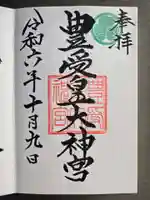 奉拝
豊受皇大神宮
令和六年十月九日